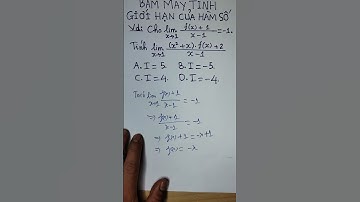 BẤM MÁY TÍNH
GIỚI HẠN CỦA HÀM SỐ
Vd: Cho lim x→1 (f(x)+1)/(x-1) = -1.
Tính lim x→1 ((x²+x).f(x)+2)/(x-1)
A. I = 5. B. I = -5.
C. I = 4. D. I = -4.
lim x→1 (f(x)+1)/(x-1) = -1
⇒ (f(x)+1)/(x-1) = -1
⇒ f(x)+1 = -x+1
⇒ f(x) = -x